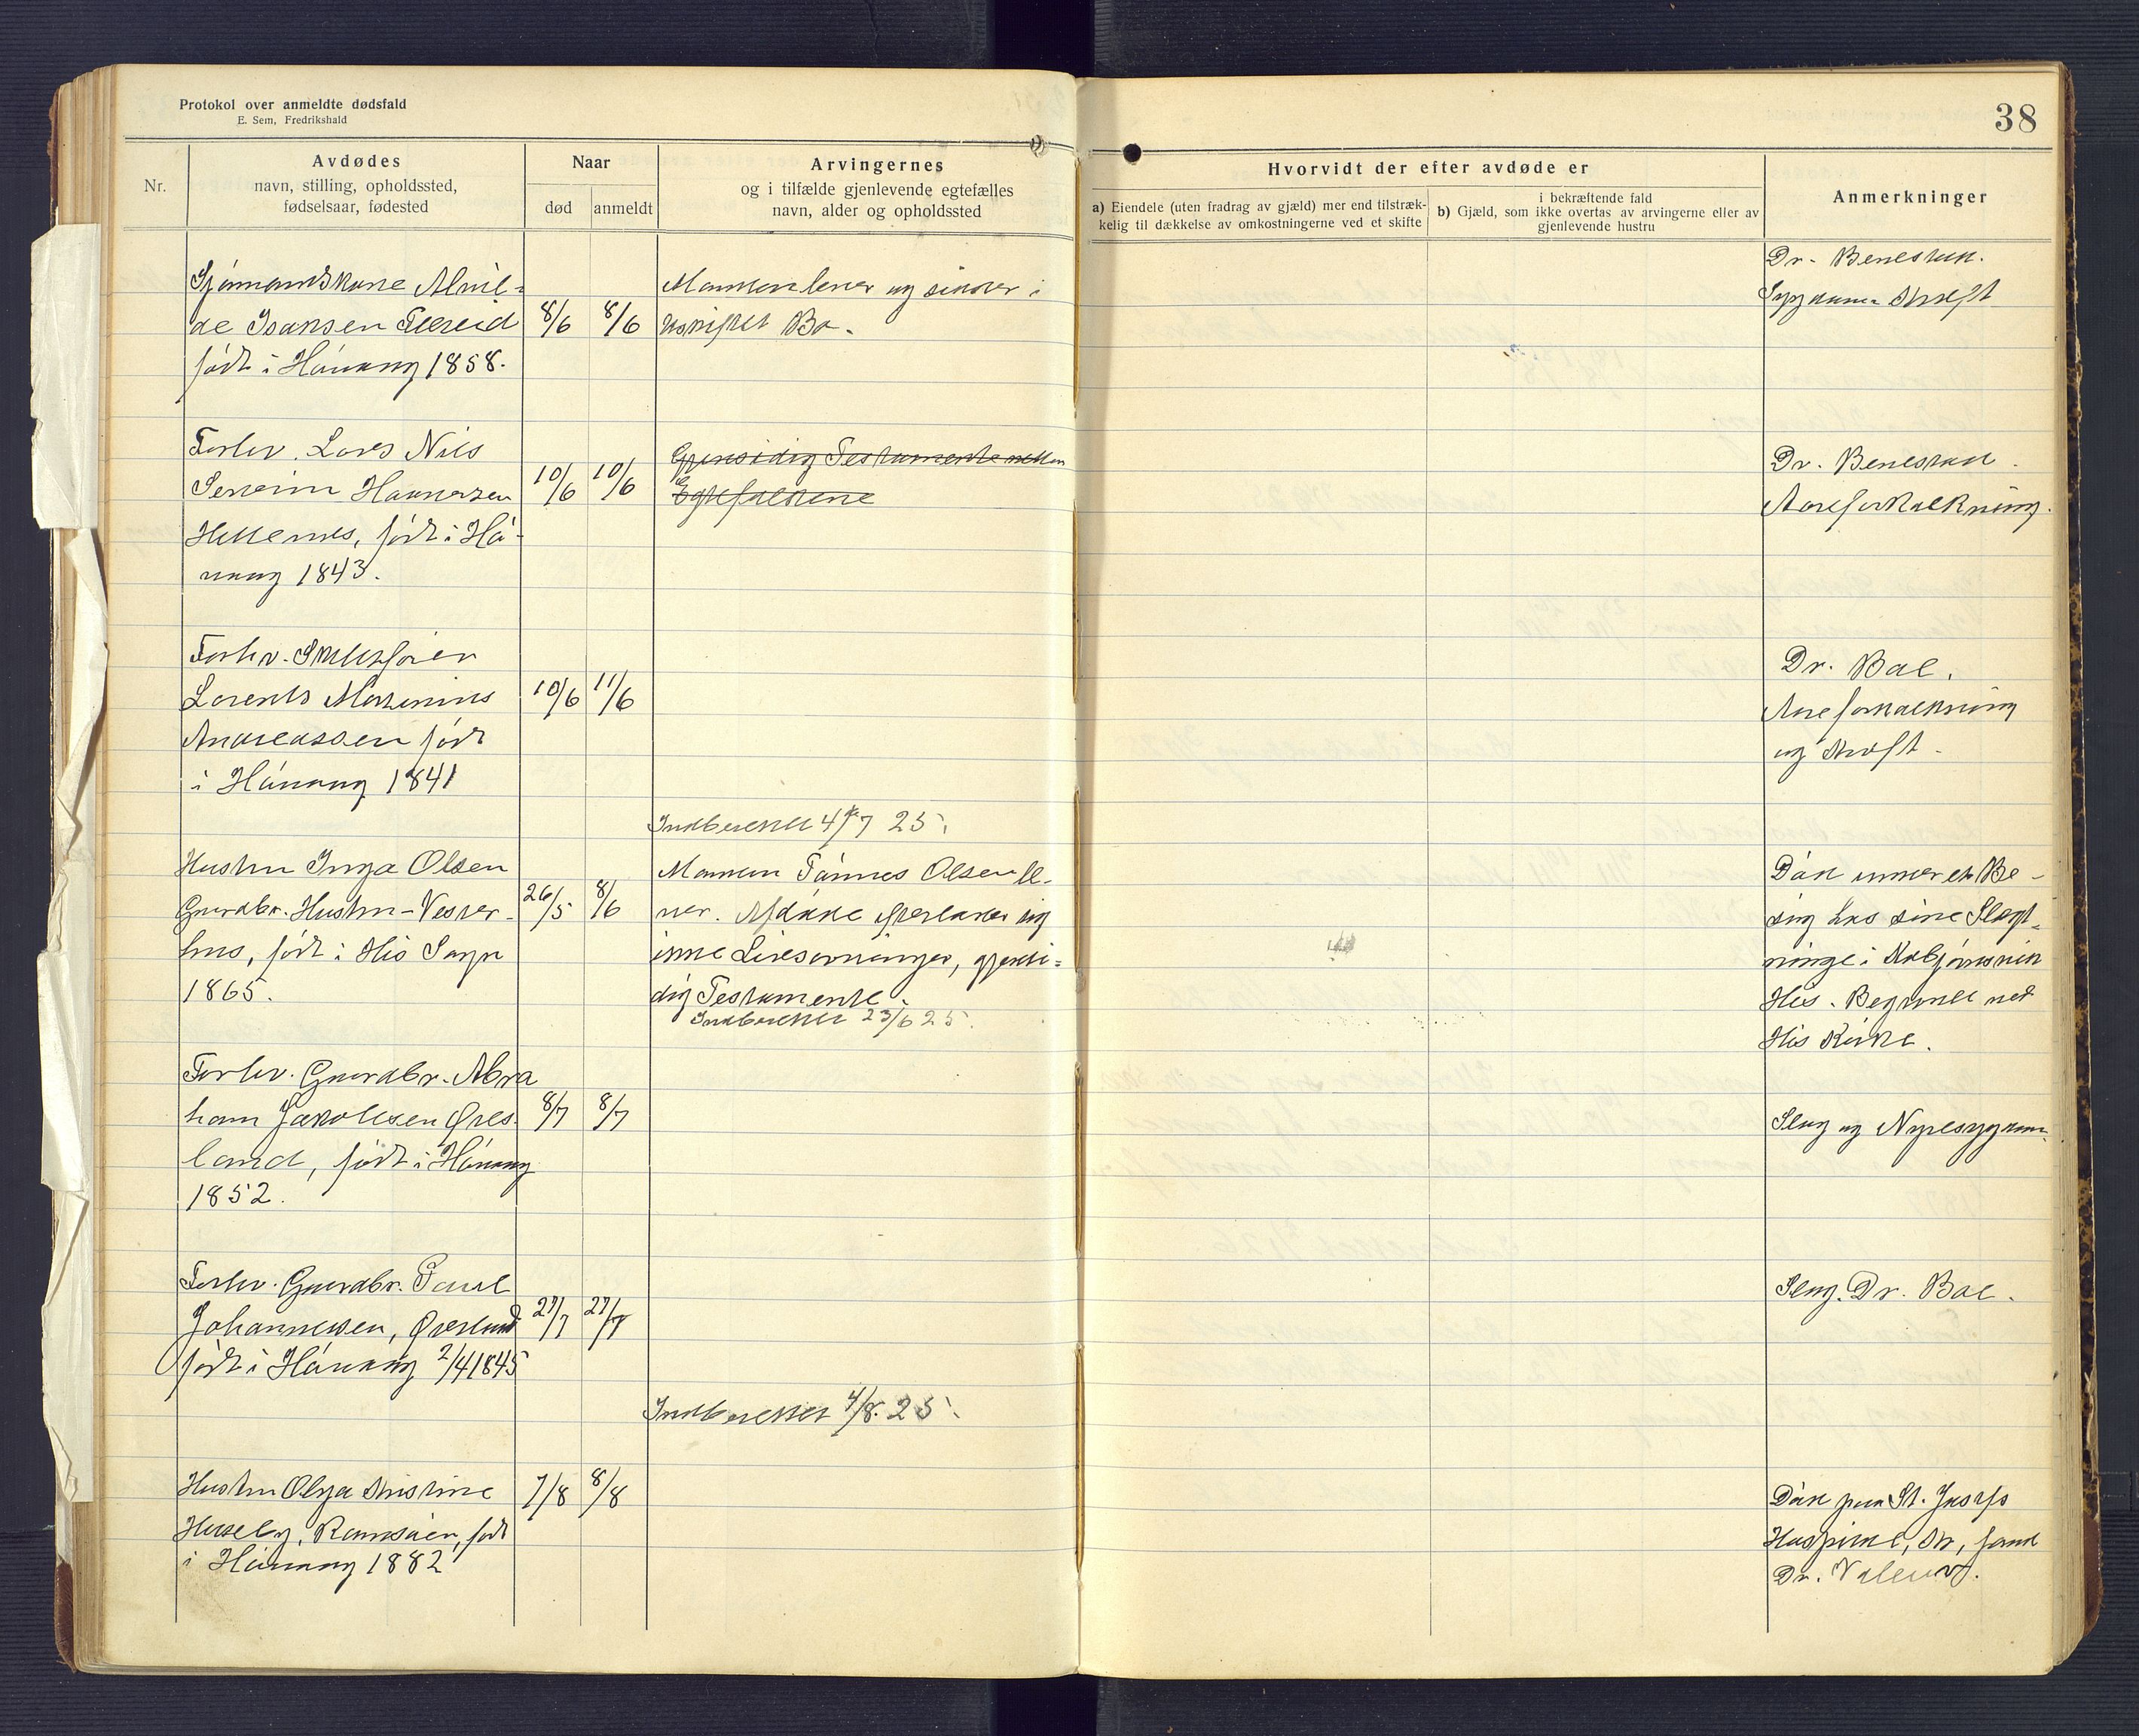 Protokol over anmeldte dødsfald
E. Sem, Fredrikshald
38
Nr.
Avdødes
navn, stilling, opholdssted,
fødselsaar, fødested
Naar
død
anmeldt
Arvingernes
og i tilfælde gjenlevende egtefælles
navn, alder og opholdssted
Hvorvidt der efter avdøde er
a) Eiendele (uten fradrag av gjæld) mer end tilstræk-
kelig til dækkelse av omkostningerne ved et skifte
i bekræftende fald
b) Gjæld, som ikke overtas av arvingerne eller av
gjenlevende hustru
Anmerkninger
Sjömandskone Alvil-
de Isaksen
født i Hövaag 1858.
8/6
8/6
Manden lever og sidder i
uskiftet Bo.
Dr. Benestad.
Sygdom Kræft
Forhv. Lods Nils
Severin
født i Hö-
vaag 1843.
10/6
10/6
Gjensidig Testamente mellem
Egtefolkene
Dr. Benestad.
Aareforkalkning.
Forhv. Skibsförer
Lorents
Andreassen født
i Hövaag 1841
10/6
11/6
Dr. Bae.
Aareforkalkning
og Kræft.
Indberettet 4/7 25.
Hustru Inga Olsen
Gaardbr. Hustru - Vester-
hus, født i His Sogn
1865.
26/5
8/6
Manden Tönnes Olsen le-
ver. Afdøde efterlader sig
ikke Livsarvinger, gjensi-
dig Testamente.
Indberettet 23/6 25.
Död under et Be-
søg hos sine Slegt-
ninge i
His. Begravet ved
His Kirke.
Forhv. Gaardbr. Abra
ham Jakobsen Øves-
land, født i Hövaag
1852.
8/7
8/7
Slag og Nyresygdom
Forhv. Gaardbr. Paul
Johannesen, Øvesland
født i Hövaag 2/4 1845
27/7
27/7
Slag. Dr. Bae.
Indberettet 4/8. 25.
Hustru Olga Kristine
Huseby, Ramsöen, født
i Hövaag 1882
7/8
8/8
Död paa St. Josefs
Hospital, Kr. sand
Dr.